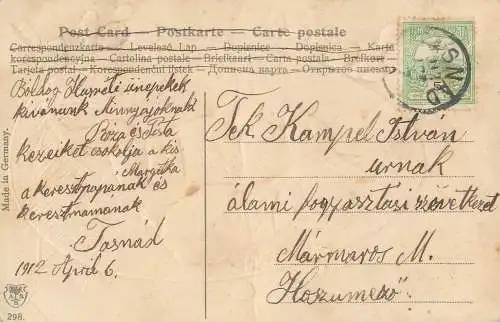 Post Card — Postkarte — Carte postale
Correspondenzkarte — Levelező Lap — Dopisnice — Dopisnica — Karta
korespondencyjna — Cartolina postala — Briefkaart — Carta postala — Brefkort
Tarjeta postal — Korespondenční lístek — Дописна карта — Открытое письмо
SNÁD
Boldog Husveti ünepekek
kivánunk Minnyájoknak
Róza és
kezeiket csokolja a kis
Margitka
a keresztnapának és
keresztmamanak
Tasnád
1912 April 6.
Tek. Kampel István
urnak
álami fogyasztási szövetkezet
Mármaros M.
Hoszumező
Made in Germany.
298.